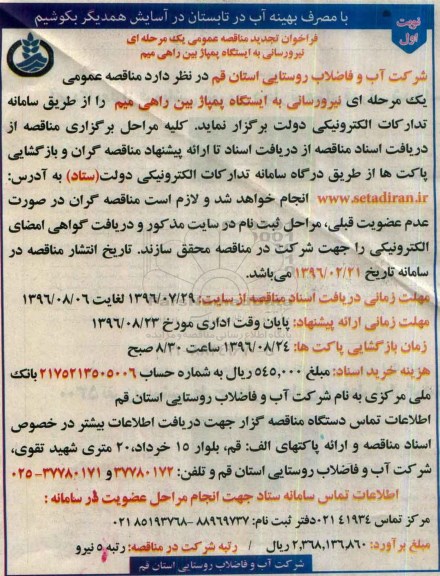 با مصرف بهینه آب در تابستان در آسایش همدیگر بکوشیم
نوبت اول
فراخوان تجدید مناقصه عمومی یک مرحله ای
نیرورسانی به ایستگاه پمپاژ بین راهی میم
شرکت آب و فاضلاب روستایی استان قم در نظر دارد مناقصه عمومی
یک مرحله ای نیرورسانی به ایستگاه پمپاژ بین راهی میم را از طریق سامانه
تدارکات الکترونیکی دولت برگزار نماید. کلیه مراحل برگزاری مناقصه از
دریافت اسناد مناقصه از دریافت اسناد تا ارائه پیشنهاد مناقصه گران و بازگشایی
پاکت ها از طریق درگاه سامانه تدارکات الکترونیکی دولت(ستاد) به آدرس:
www.setadiran.ir انجام خواهد شد و لازم است مناقصه گران در صورت
عدم عضویت قبلی، مراحل ثبت نام در سایت مذکور و دریافت گواهی امضای
الکترونیکی را جهت شرکت در مناقصه محقق سازند. تاریخ انتشار مناقصه در
سامانه تاریخ ۱۳۹۶/۰۲/۲۱ می‌باشد.
مهلت زمانی دریافت اسناد مناقصه از سایت: ۱۳۹۶/۰۷/۲۹ لغایت ۱۳۹۶/۰۸/۰۶
مهلت زمانی ارائه پیشنهاد: پایان وقت اداری مورخ ۱۳۹۶/۰۸/۲۳
زمان بازگشایی پاکت ها: ۱۳۹۶/۰۸/۲۴ ساعت ۸/۳۰ صبح
هزینه خرید اسناد: مبلغ ۵۴۵,۰۰۰ ریال به شماره حساب ۲۱۷۵۲۱۳۵۰۵۰۰۶ بانک
ملی مرکزی به نام شرکت آب و فاضلاب روستایی استان قم
اطلاعات تماس دستگاه مناقصه گزار جهت دریافت اطلاعات بیشتر در خصوص
اسناد مناقصه و ارائه پاکتهای الف: قم، بلوار ۱۵ خرداد، ۲۰ متری شهید تقوی،
شرکت آب و فاضلاب روستایی استان قم و تلفن: ۳۷۷۸۰۱۷۲ و ۳۷۷۸۰۱۷۱-۰۲۵
اطلاعات تماس سامانه ستاد جهت انجام مراحل عضویت در سامانه :
مرکز تماس ۴۱۹۳۴ ۰۲۱ دفتر ثبت نام: ۸۸۹۶۹۷۳۷ - ۸۵۱۹۳۷۶۸ ۰۲۱
مبلغ برآورد: ۲,۳۶۸,۱۳۶,۸۶۰ ریال / رتبه شرکت در مناقصه: رتبه ۵ نیرو
شرکت آب و فاضلاب روستایی استان قم